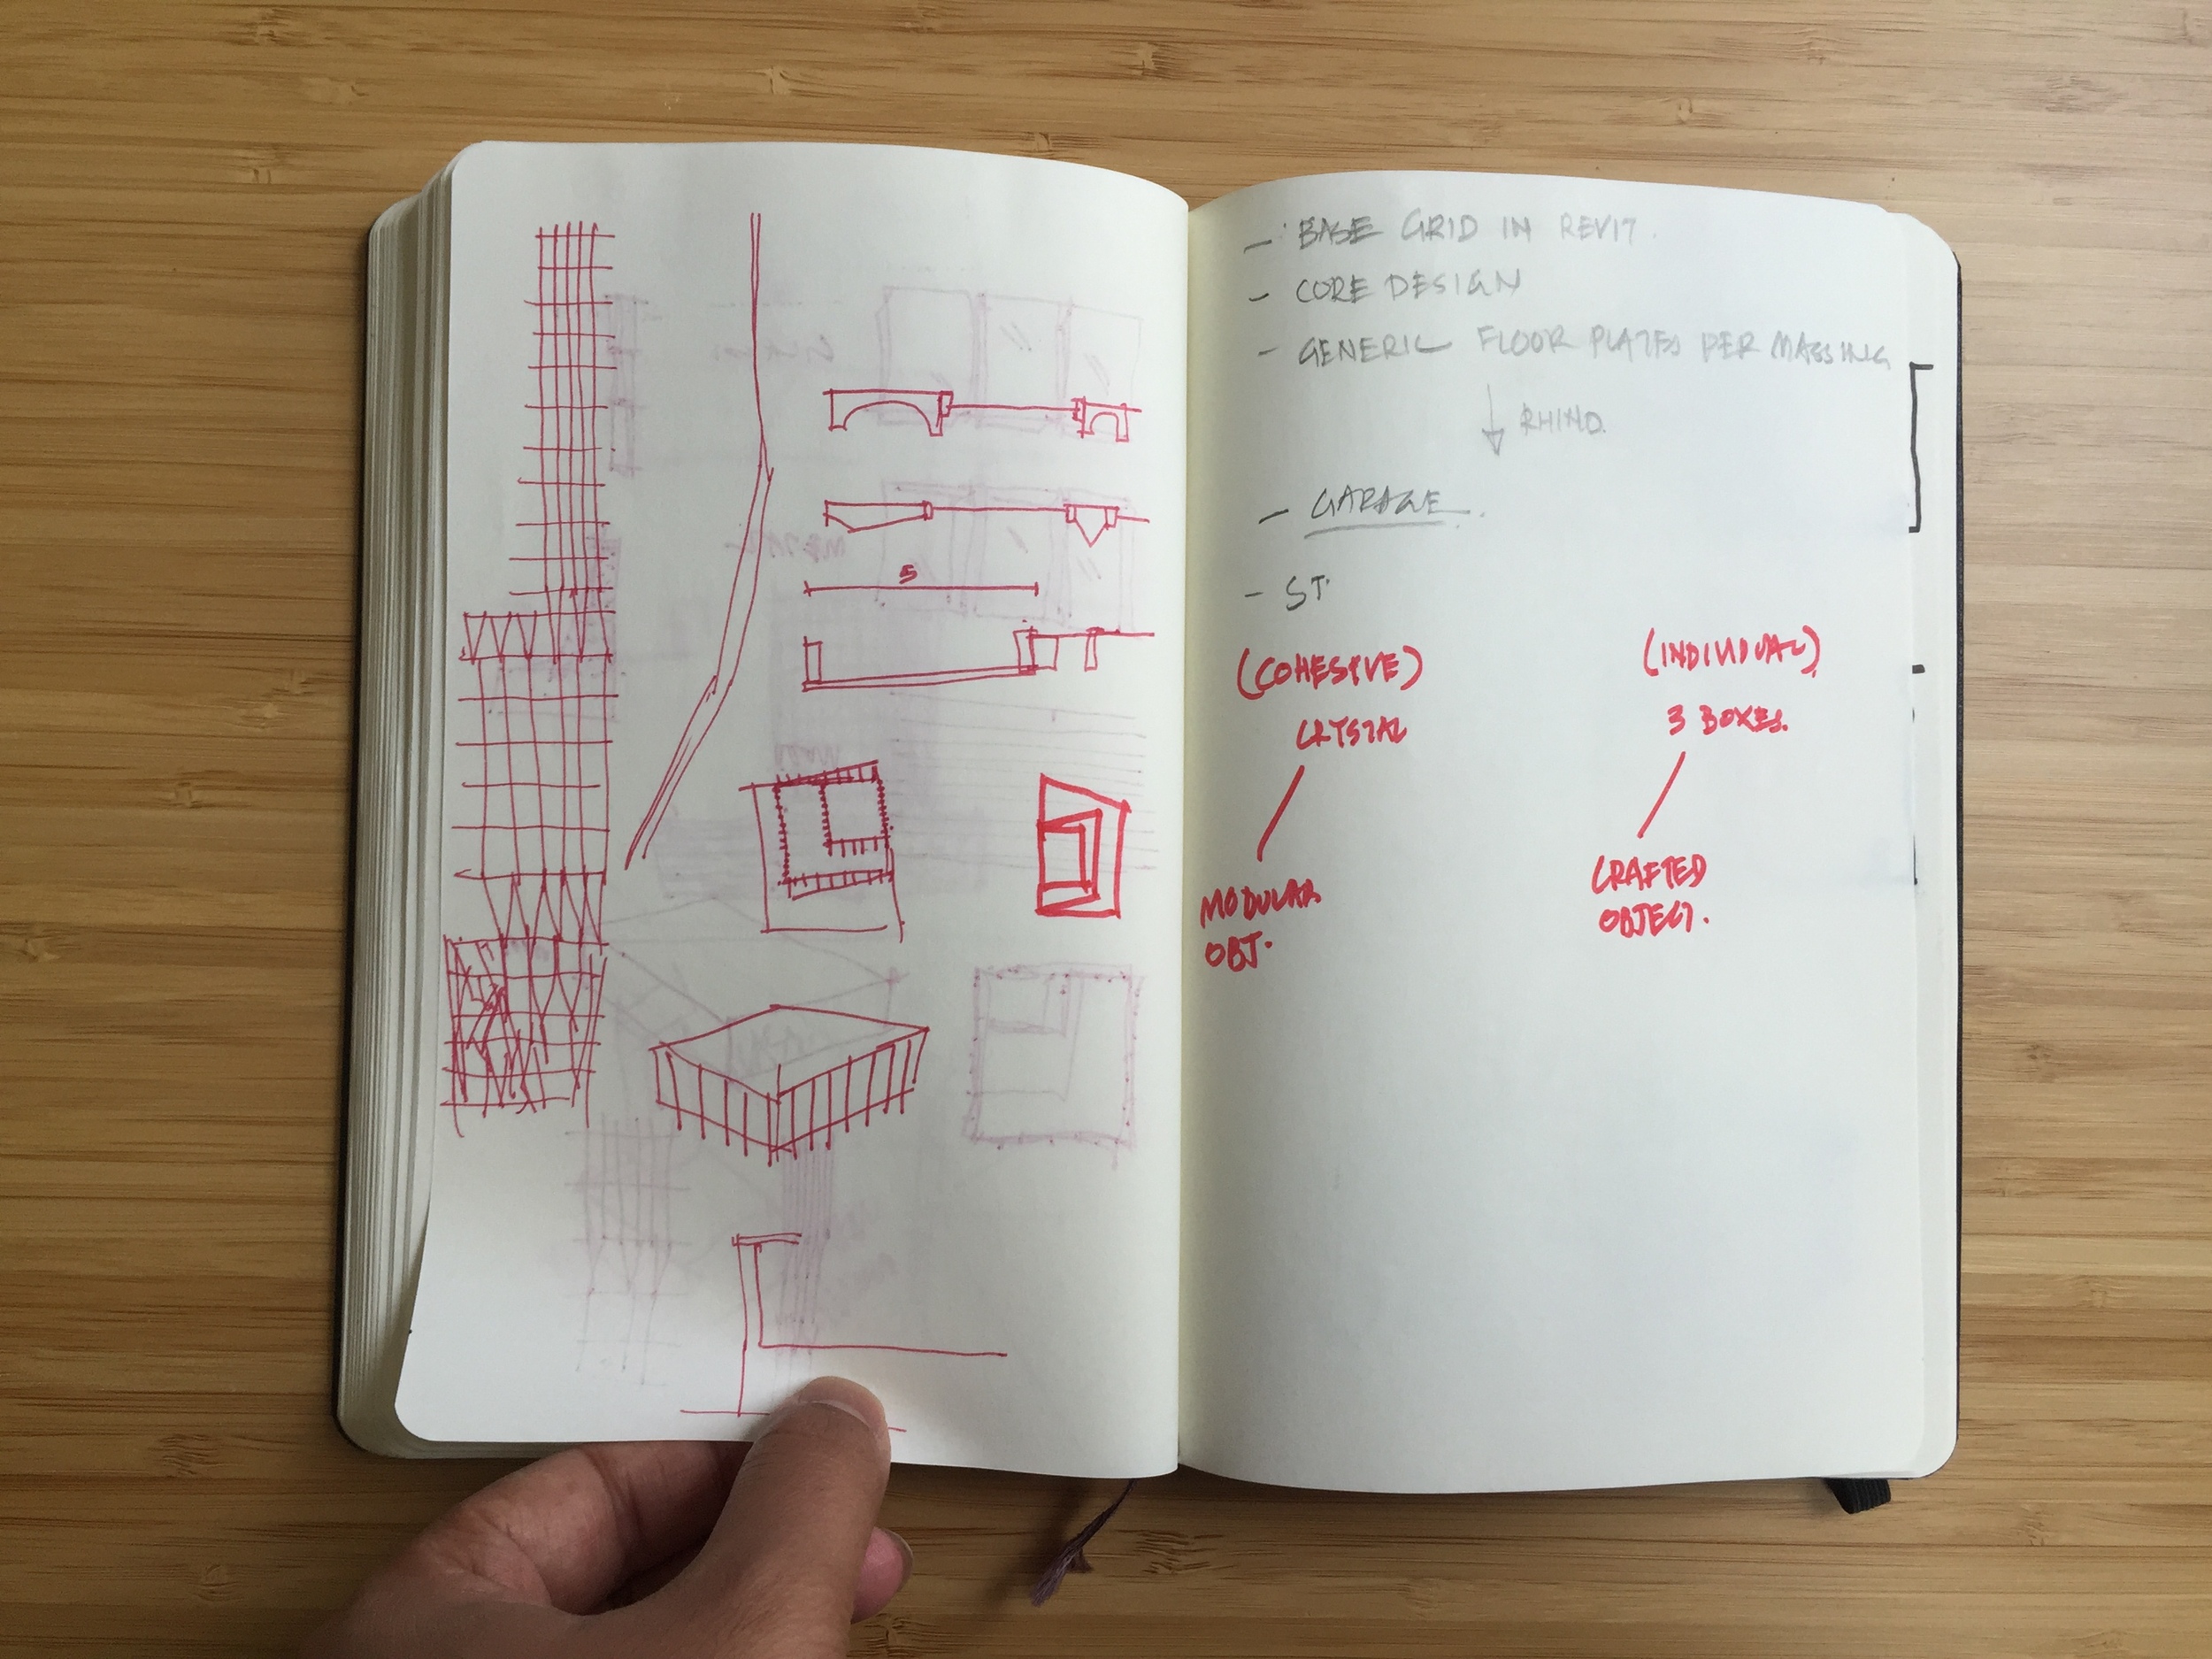 5
- BASE GRID IN REVIT.
- CORE DESIGN
- GENERIC FLOOR PLATES PER MASSING
RHINO.
- GARAGE.
- ST.
(COHESIVE)
(INDIVIDUAL)
CRYSTAL
3 BOXES.
MODULAR
OBJ.
CRAFTED
OBJECT.